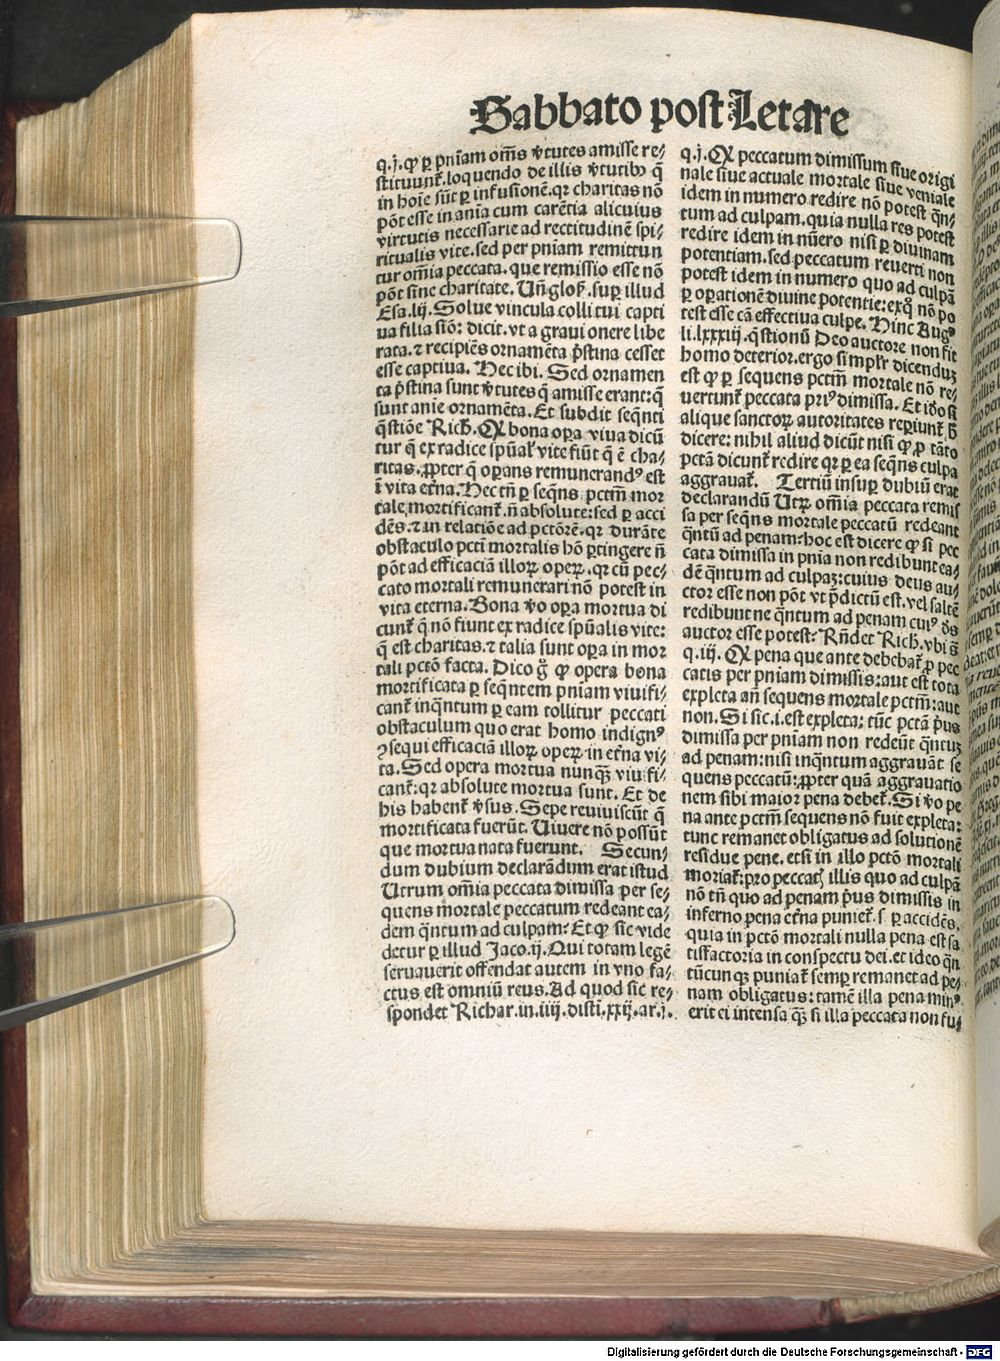 Sabbato post Letare
q.j. ꝙ ꝑ pn̄iam om̄s v̓tutes amisse re⸗
stituunt̄.loquendo de illis v̓tutibꝰ q̄
in hoīe sūt ꝑ infusionē.qꝛ charitas nō
pōt esse in aīa cum carētia alicuius
virtutis necessarie ad rectitudinē spi⸗
ritualis vite.sed per pn̄iam remittun
tur om̄ia peccata. que remissio esse nō
pōt sine charitate. Un̄ glos̄. suꝑ illud
Esa.lij. Solue vincula colli tui capti
ua filia siō: dicit. vt a graui onere libe
rata.⁊ recipiēs ornamēta p̄stina cesset
esse captiua. Hec ibi. Sed ornamen
ta p̄stina sunt v̓tutes q̄ amisse erant:q̄
sunt anie ornamēta. Et subdit seqn̄ti
q̄stiōe Rich̄. Ꝙ bona oꝑa viua dicū
tur q̄ ex radice spūal̓ vite fiūt q̄ ē cha⸗
ritas.ꝓpter q̄ oꝑans remunerandꝰ est
ī vita et̄na. Hec tn̄ ꝑ seqn̄s pctm̄ mor
tale mortificant̄.n̄ absolute:sed ꝑ acci
dēs.⁊ in relatiōe ad pctōrē.qꝛ durāte
obstaculo pcti mortalis hō ꝑtingere n̄
pōt ad efficaciā illoꝝ opeꝝ.qꝛ cū pec⸗
cato mortali remunerari nō potest in
vita eterna. Bona v̓o oꝑa mortua di
cunt̄ q̄ nō fiunt ex radice spūalis vite:
q̄ est charitas.⁊ talia sunt oꝑa in mor
tali pctō facta. Dico g̊ ꝙ opera bona
mortificata ꝑ seqn̄tem pn̄iam viuifi⸗
cant̄ inqn̄tum ꝑ eam tollitur peccati
obstaculum quo erat homo indignꝰ
ꝯsequi efficaciā illoꝝ opeꝝ in et̄na vi⸗
ta. Sed opera mortua nunqꝫ viuifi⸗
cant̄:qꝛ absolute mortua sunt. Et de
his habent̄ v̓sus. Sepe reuiuiscūt q̄
mortificata fuerūt. Uiuere nō possūt
que mortua nata fuerunt. Secun⸗
dum dubium declarādum erat istud
Utrum om̄ia peccata dimissa per se⸗
quens mortale peccatum redeant ea⸗
dem qn̄tum ad culpam: Et ꝙ sic vide
detur ꝑ illud Jaco.ij. Qui totam legē
seruauerit offendat autem in vno fa⸗
ctus est omniū reus. Ad quod sic re⸗
spondet Richar.in.iiij.disti.xxij.ar.j.
q.j. Ꝙ peccatum dimissum siue origi
nale siue actuale mortale siue veniale
idem in numero redire nō potest qn̄⸗
tum ad culpam.quia nulla res potest
redire idem in nūero nisi ꝑ diuinam
potentiam.sed peccatum reuerti non
potest idem in numero quo ad culpā
ꝑ oꝑationē diuine potentie:exq̊ nō po
test esse cā effectiua culpe. Hinc Augꝰ
li.lxxxiij.q̄stionū Deo auctore non fit
homo deterior.ergo simpl̓r dicenduꝫ
est ꝙ ꝑ sequens pctm̄ mortale nō re⸗
uertunt̄ peccata priꝰ dimissa. Et iđo si
alique sanctoꝝ autoritates reꝑiunt̄ ħ
dicere: nihil aliud dicūt nisi ꝙ ꝓ tāto
pctā dicunt̄ redire qꝛ ꝑ ea seqn̄s culpa
aggrauat̄. Tertiū insuꝑ dubiū erat
declarandū Utꝝ om̄ia peccata remis
sa per seqn̄s mortale peccatū redeant
qn̄tū ad penam:hoc est dicere ꝙ si pec
cata dimissa in pnia non redibunt ea⸗
dē qn̄tum ad culpaꝫ:cuius deus au⸗
ctor esse non pōt vt p̄dictū est.vel saltē
redibunt ne qn̄tum ad penam cuiꝰ ds̄
auctor esse potest: Rn̄det Rich.vbi s̄
q.iij. Ꝙ pena que ante debebat̄ ꝓ pec
catis per pniam dimissis:aut est tota
expleta an̄ sequens mortale pctm̄:aut
non. Si sic.i.est expleta: tūc pctā p̄us
dimissa per pniam non redeūt qn̄tuꝫ
ad penam:nisi inqn̄tum aggrauāt se
quens peccatū:ꝓpter quā aggrauatio
nem sibi maior pena debet̄. Si v̓o pe
na ante pctm̄ sequens nō fuit expleta:
tunc remanet obligatus ad solutionē
residue pene. etsi in illo pctō mortali
moriat̄:pro peccatꝭ illis quo ad culpā
nō tn̄ quo ad penam p̄us dimissis in
inferno pena et̄na puniet̄. s. ꝑ accidēs.
quia in pctō mortali nulla pena est sa
tisfactoria in conspectu dei.et ideo qn̄
tūcunqꝫ puniat̄ semꝑ remanet ad pe⸗
nam obligatus: tamē illa pena minꝰ
erit ei intensa qꝫ si illa peccata non fu⸗
Digitalisierung gefördert durch die Deutsche Forschungsgemeinschaft - DFG